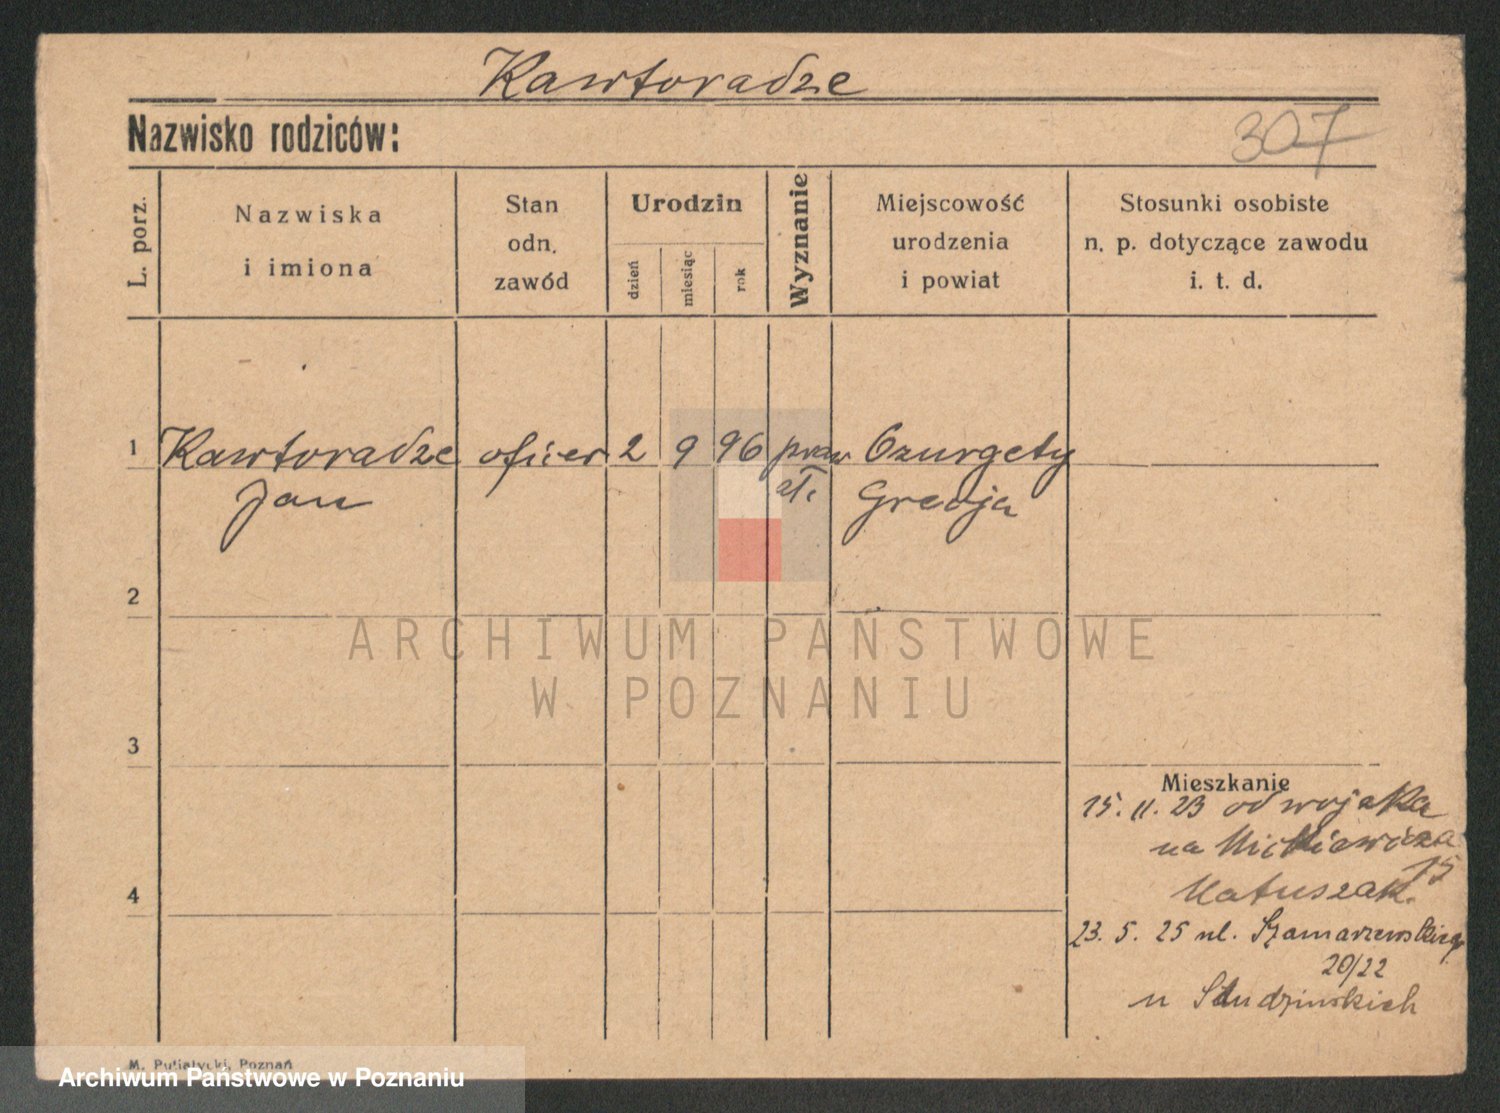 Kawtoradze
Nazwisko rodziców:
307
L. porz.
Nazwiska
i imiona
Stan
odn.
zawód
Urodzin
dzień
miesiąc
rok
Wyznanie
Miejscowość
urodzenia
i powiat
Stosunki osobiste
n. p. dotyczące zawodu
i. t. d.
1 Kawtoradze oficer 2 9 96 praw Ozurgety
Jan sł.
2
3
4
ARCHIWUM PAŃSTWOWE
W POZNANIU
Mieszkanie
15. 11. 23 od wojska
na Mickiewicza
15
Matuszak.
23. 5. 25 ul. Szamarzewskiego
20/22
u Studzińskich
M. Putiatycki, Poznań
Archiwum Państwowe w Poznaniu